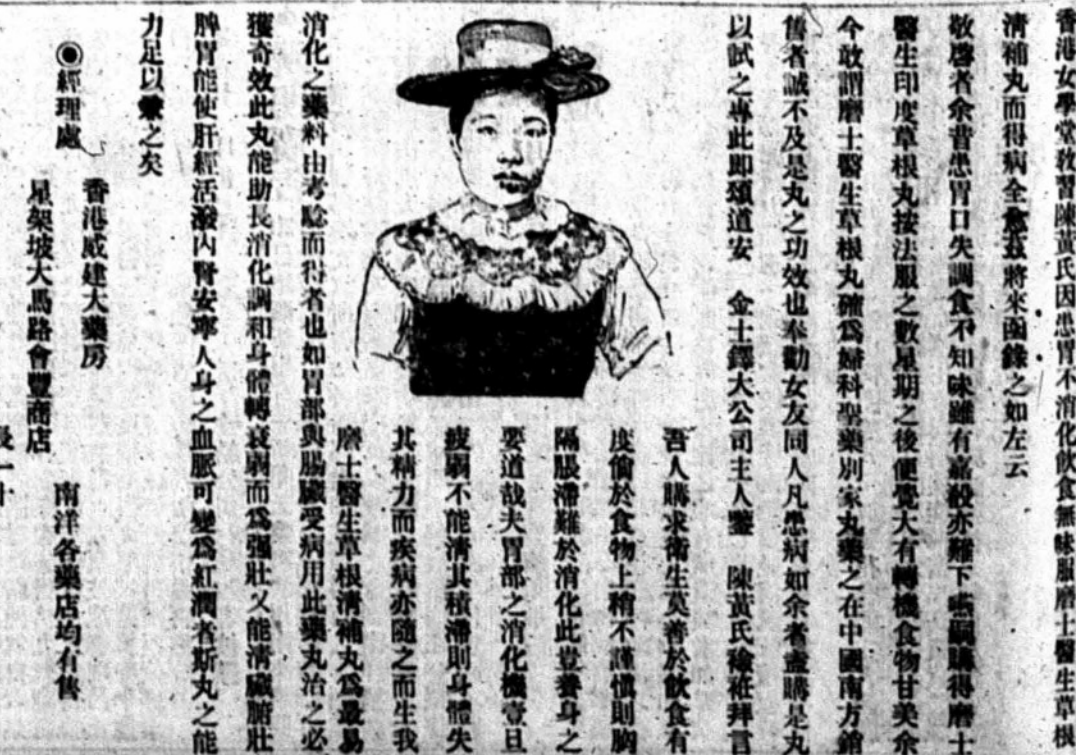 香港女學堂教習陳黃氏因患胃不消化飲食無味服磨士醫生草根
清補丸而得病全愈茲將來函錄之如左云
敬啓者余昔患胃口失調食不知味雖有嘉殽亦難下嚥嗣購得磨士
醫生印度草根丸按法服之數星期之後便覺大有轉機食物甘美余
今敢謂磨士醫生草根丸確爲婦科聖藥別家丸藥之在中國南方銷
售者誠不及是丸之功效也奉勸女友同人凡患病如余者盍購是丸
以試之專此即頌道安　金士鐸大公司主人鑒　陳黃氏襝衽拜言
吾人購求衛生莫善於飲食有
度偷於食物上稍不謹慎則胸
隔脹滯難於消化此豈養身之
要道哉夫胃部之消化機壹旦
疲弱不能淸其積滯則身體失
其精力而疾病亦隨之而生我
磨士醫生草根淸補丸爲最易
消化之藥料由考騐而得者也如胃部與腸臟受病用此藥丸治之必
獲奇效此丸能助長消化調和身體轉衰弱而爲强壯乂能淸臟腑壯
脾胃能使肝經活潑內腎安寧人身之血脈可變爲紅潤者斯丸之能
力足以兼之矣
◉經理處
香港威建大藥房
星架坡大馬路會豐商店
南洋各藥店均有售